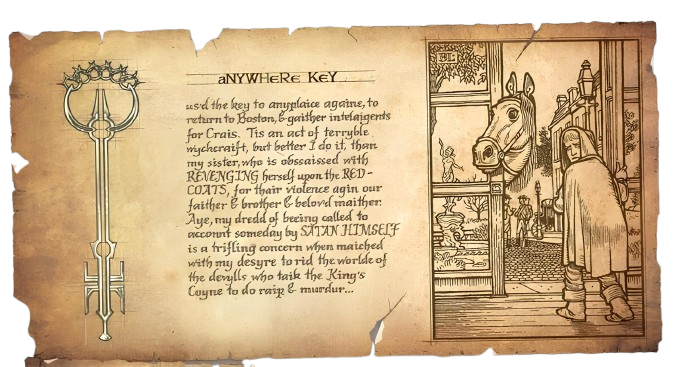 aNYWHeRe KeY
us'd the key to anyplaice againe, to
return to Boston, & gaither intelaigents
for Crais. Tis an act of terryble
wychcraift, but better I do it, than
my sister, who is obssaissed with
REVENGING herself upon the RED-
COATS, for thair violence agin our
faither & brother & belov'd maither.
Aye, my dredd of beeing called to
account someday by SATAN HIMSELF
is a trifling concern when maiched
with my desyre to rid the worlde of
the devylls who taik the King's
Coyne to do raip & murdur...
BL